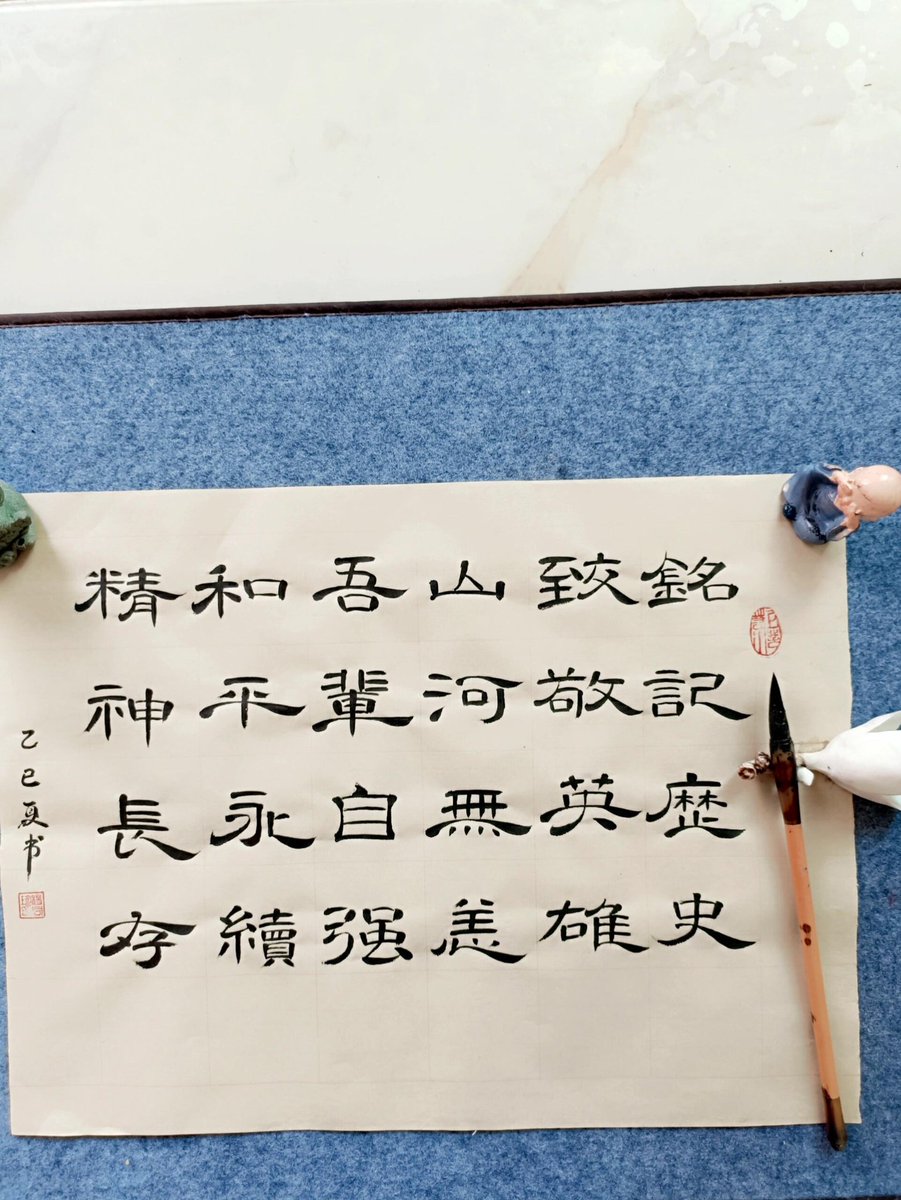 銘記歷史
致敬英雄
山河無恙
吾輩自强
和平永續
精神長存
乙巳夏书